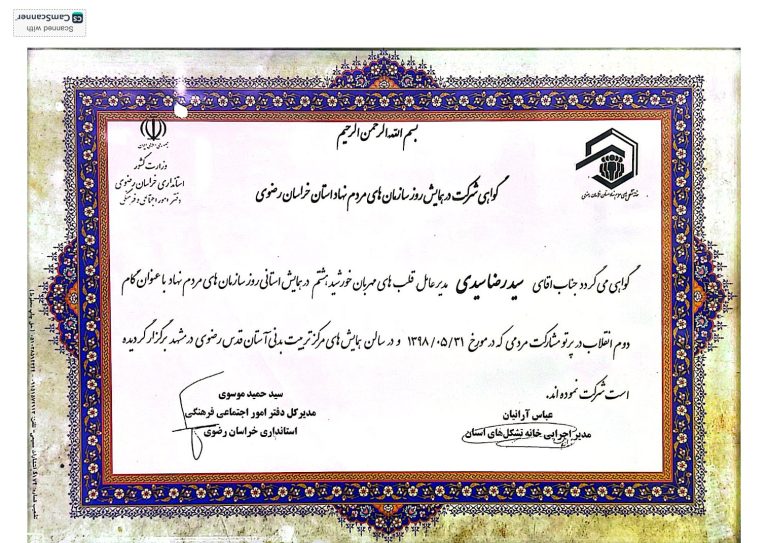 Scanned with
CamScanner
بسم الله الرحمن الرحیم
جمهوری اسلامی ایران
وزارت کشور
استانداری خراسان رضوی
دفتر امور اجتماعی و فرهنگی
گواهی شرکت در همایش روز سازمان های مردم نهاد استان خراسان رضوی
گواهی می گردد جناب اقای سید رضا سیدی مدیر عامل قلب های مهربان خورشید هشتم در همایش استانی روز سازمان های مردم نهاد با عنوان گام
دوم انقلاب در پرتو مشارکت مردمی که در مورخ ۱۳۹۸/۰۵/۳۱ و در سالن همایش های مرکز تربیت بدنی آستان قدس رضوی در مشهد برگزار گردیده
است شرکت نموده اند.
عباس آرانیان
مدیر اجرایی خانه تشکل های استان
سید حمید موسوی
مدیرکل دفتر امور اجتماعی فرهنگی
استانداری خراسان رضوی